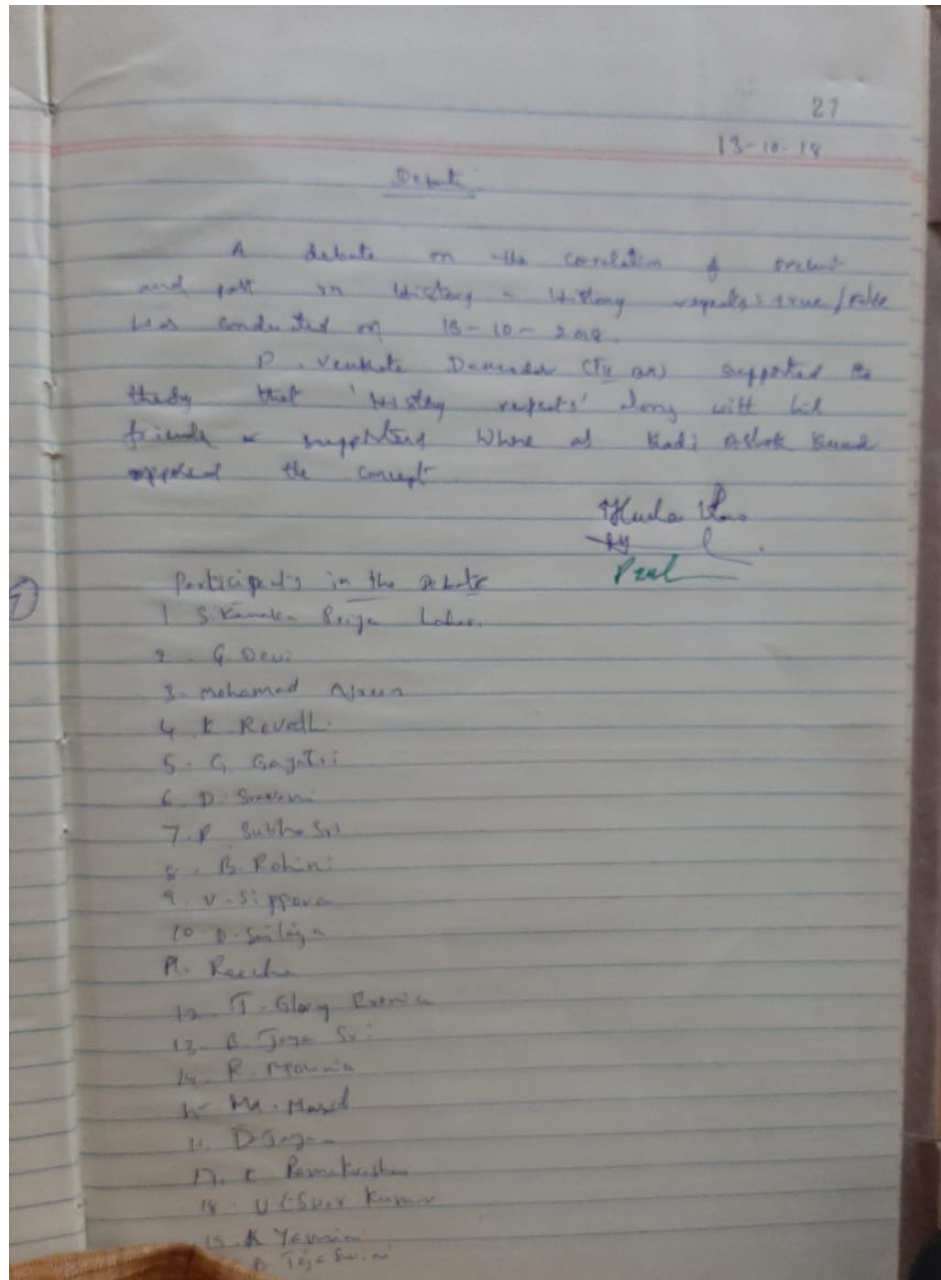 27
13-10-18
Debate
A debate on the correlation of present
and past in History - History repeats: true/False
was conducted on 13-10-2018.
P. Venkata (TU on) supported the
that 'History repeats' along with his
friends & supporters where as Kadi Ashok Kumar
opposed the concept
Participants in the Debate
1 S. Kanaka Priya
2. G. Devi
3. Mohamad
4. K. Revathi
5. G Gayatri
6. D. Sravani
7. P Subha Sri
8. B. Rohini
9. V. Sippora
10 D. Sailaja
12. T. Glory
13. B. Jaya Sri
14. R. Mounia
15
16. D
17. K Ramakrishna
18. Kumar
19. K Yamini
B. Teja Swini